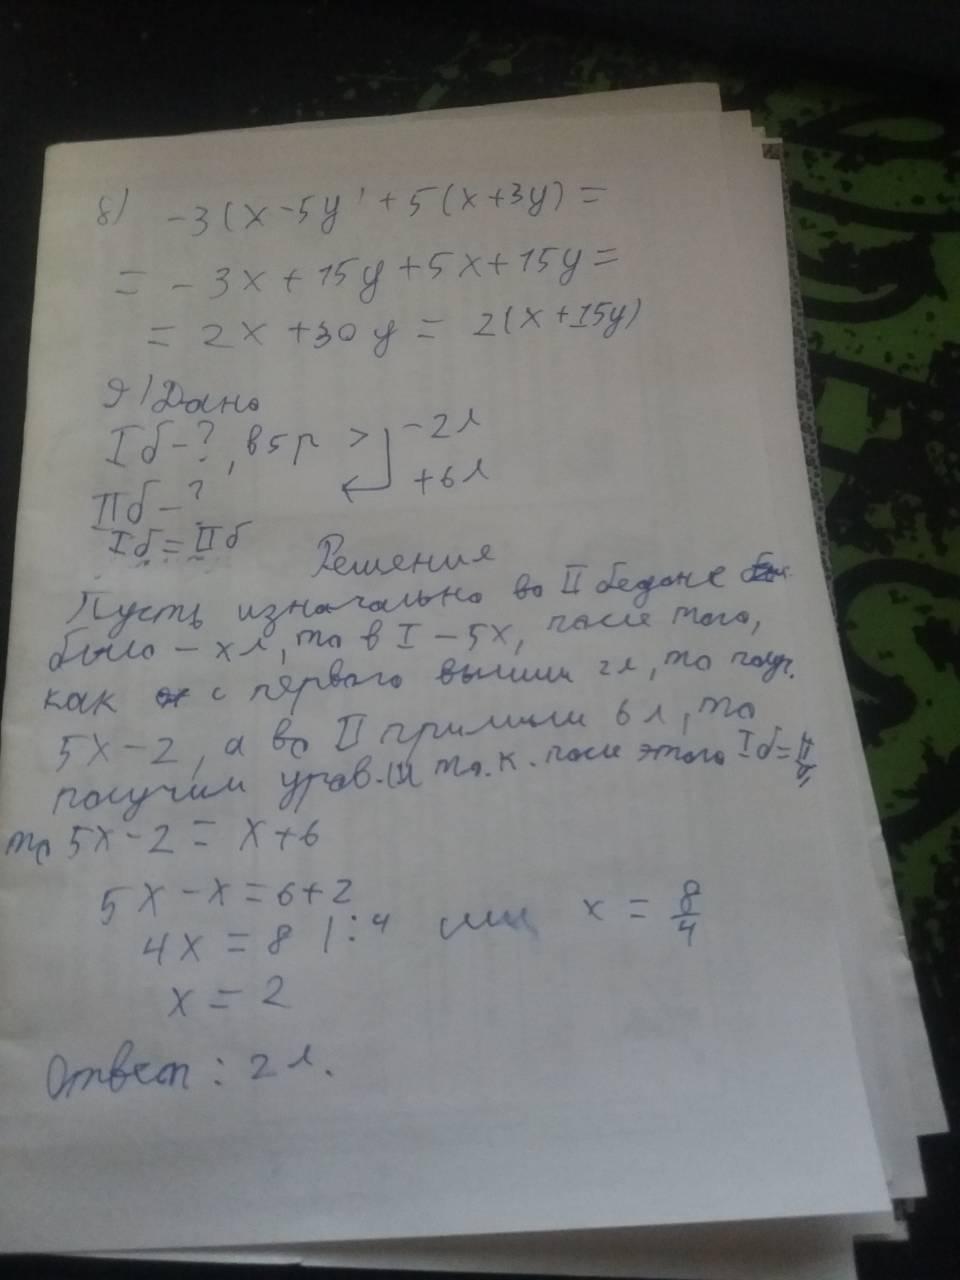 8) -3(x-5y) + 5(x+3y) =
= -3x + 15y + 5x + 15y =
= 2x + 30y = 2(x+15y)
9) Дано
Iб - ?, в 5 р > -2л
IIб - ? +6л
Iб = IIб
Решения
Пусть изначально во II бедоне
было - x л, то в I - 5x, после того,
как с первого вылили 2л, то получ.
5x-2, а во II прилили 6л, то
получим урав. т.к. после этого Iб = IIб,
то 5x-2 = x+6
5x - x = 6+2
4x = 8 |:4 или x = 8/4
x = 2
Ответ: 2л.